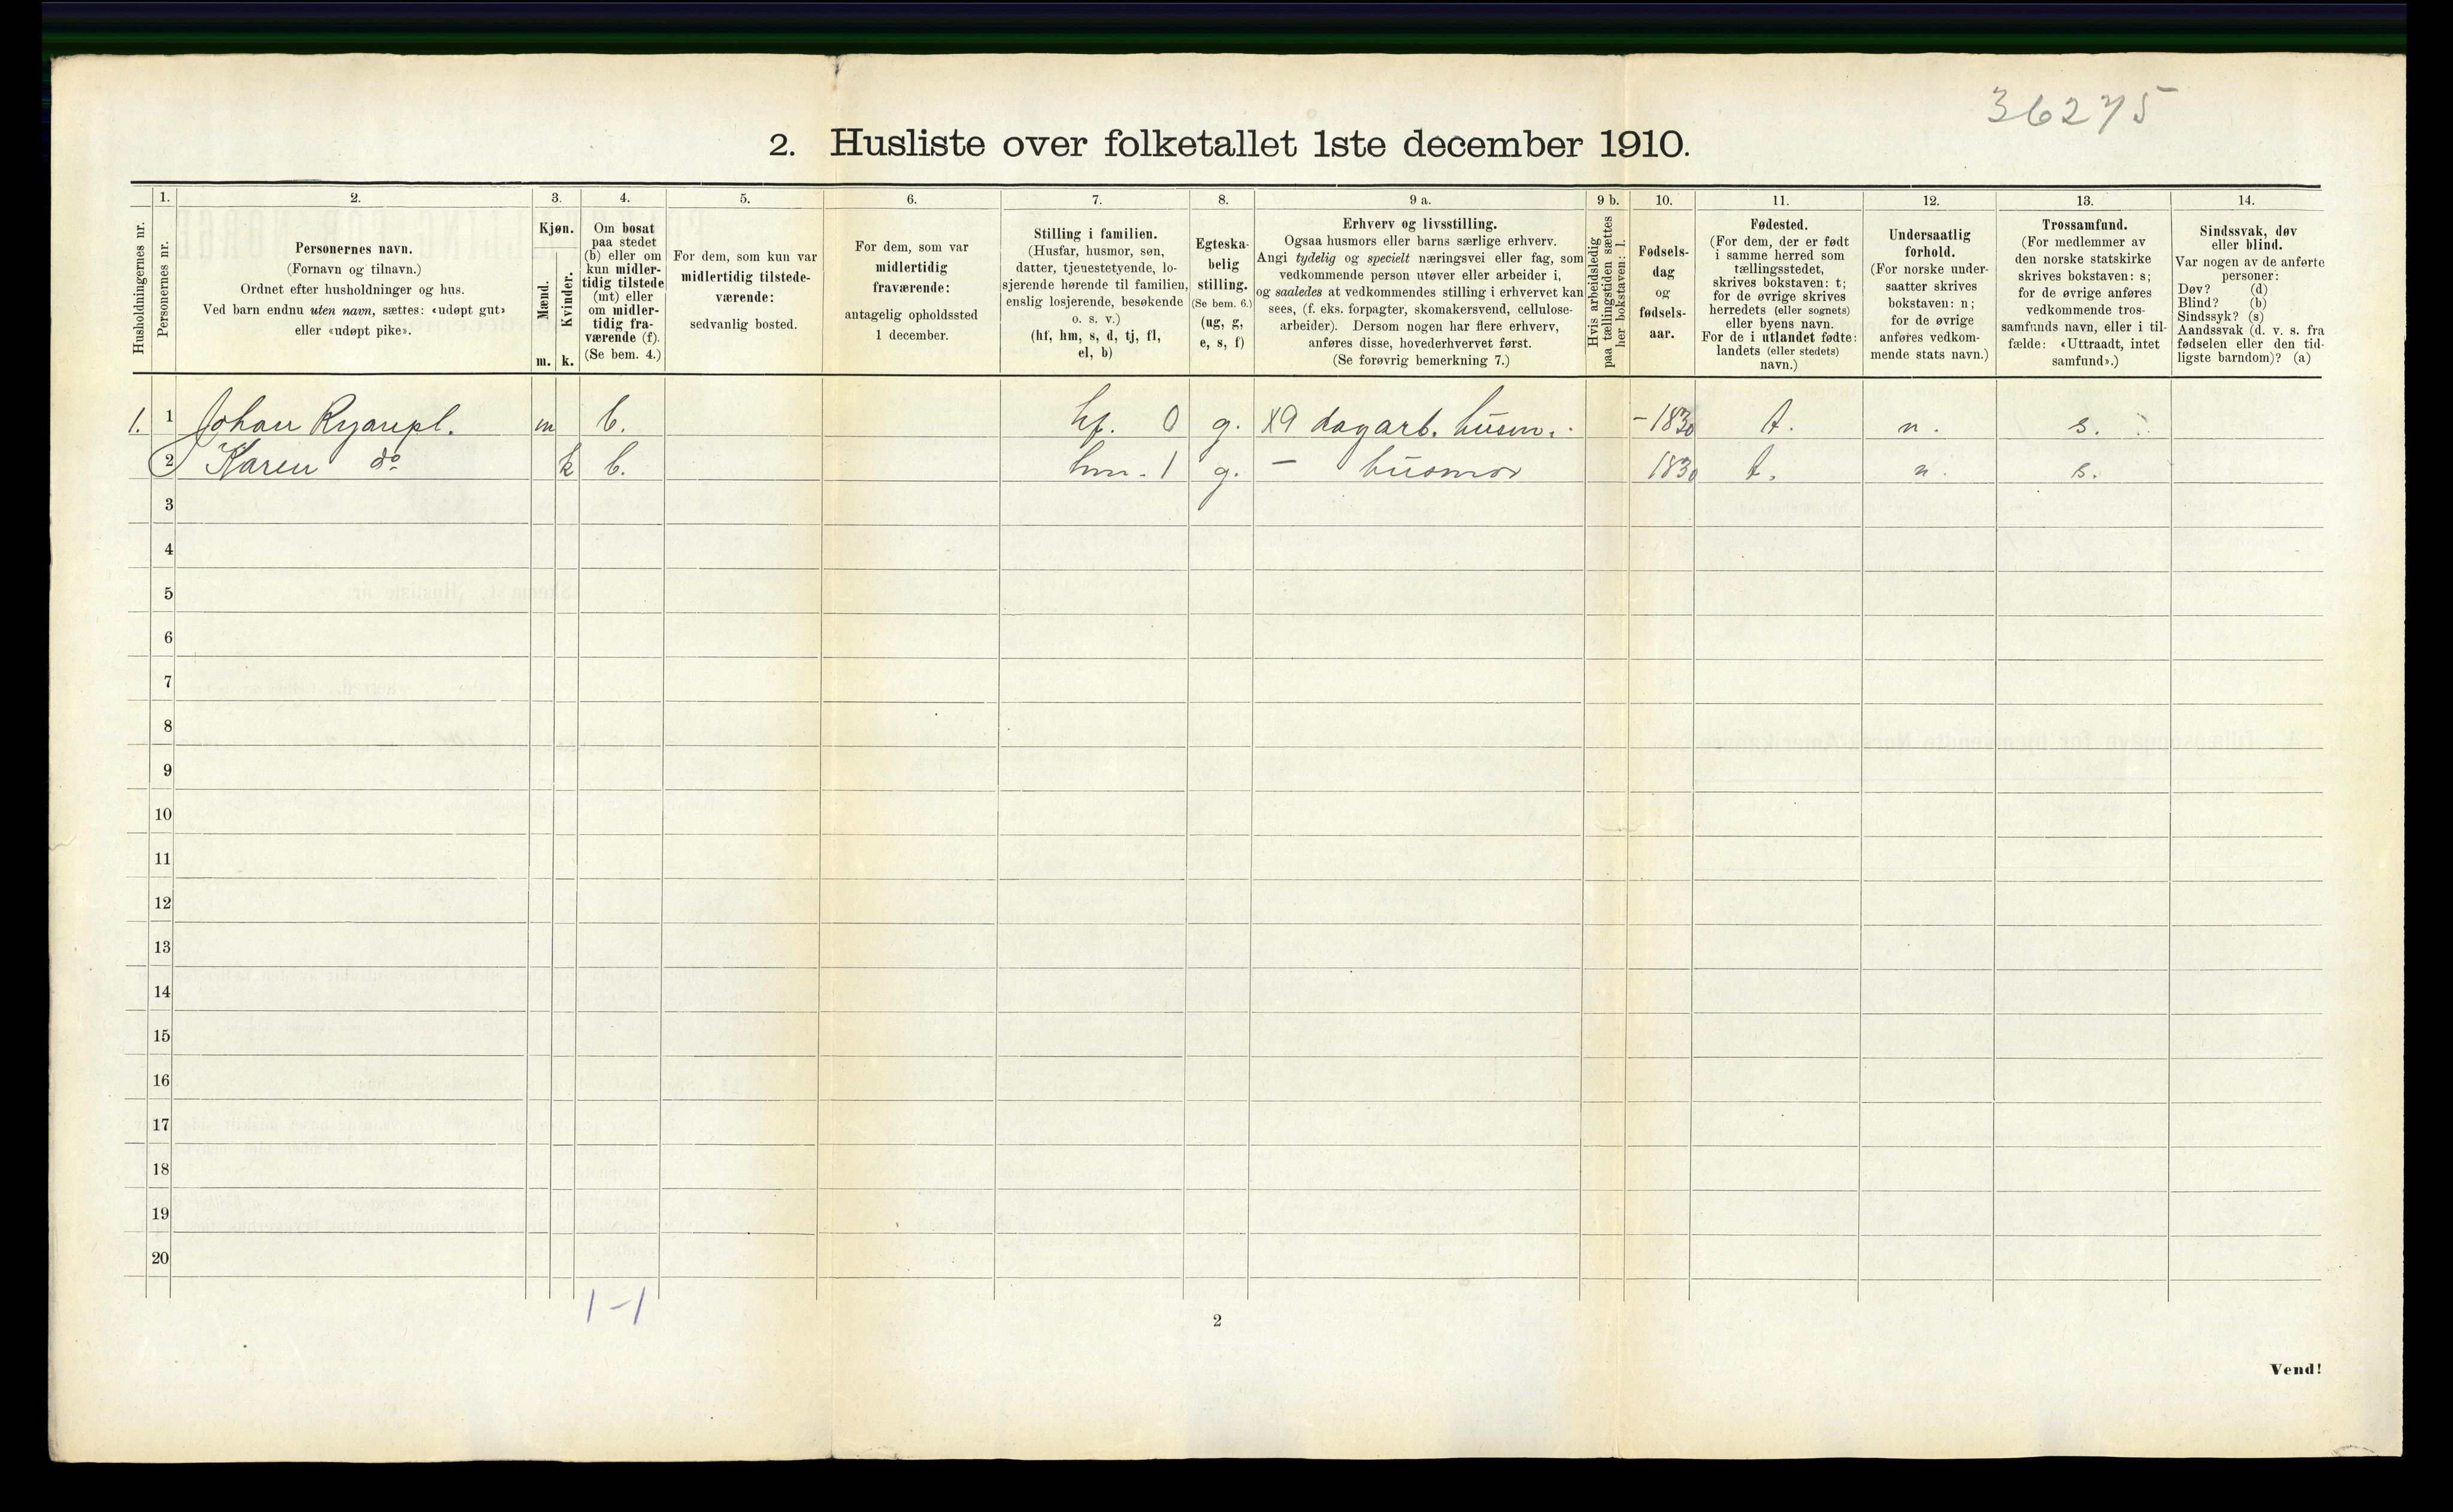 36275
2. Husliste over folketallet 1ste december 1910.
Husholdningernes nr.
1.
Personernes nr.
2.
Personernes navn.
(Fornavn og tilnavn.)
Ordnet efter husholdninger og hus.
Ved barn endnu uten navn, sættes: «udøpt gut»
eller «udøpt pike».
3.
Kjøn.
Mænd.
Kvinder.
m. k.
4.
Om bosat
paa stedet
(b) eller om
kun midler-
tidig tilstede
(mt) eller
om midler-
tidig fra-
værende (f).
(Se bem. 4.)
5.
For dem, som kun var
midlertidig tilstede-
værende:
sedvanlig bosted.
6.
For dem, som var
midlertidig
fraværende:
antagelig opholdssted
1 december.
7.
Stilling i familien.
(Husfar, husmor, søn,
datter, tjenestetyende, lo-
sjerende hørende til familien,
enslig losjerende, besøkende
o. s. v.)
(hf, hm, s, d, tj, fl,
el, b)
8.
Egteska-
belig
stilling.
(Se bem. 6.)
(ug, g,
e, s, f)
9 a.
Erhverv og livsstilling.
Ogsaa husmors eller barns særlige erhverv.
Angi tydelig og specielt næringsvei eller fag, som
vedkommende person utøver eller arbeider i,
og saaledes at vedkommendes stilling i erhvervet kan
sees, (f. eks. forpagter, skomakersvend, cellulose-
arbeider). Dersom nogen har flere erhverv,
anføres disse, hovederhvervet først.
(Se forøvrig bemerkning 7.)
9 b.
Hvis arbeidsledig
paa tællingstiden sættes
her bokstaven: l.
10.
Fødsels-
dag
og
fødsels-
aar.
11.
Fødested.
(For dem, der er født
i samme herred som
tællingsstedet,
skrives bokstaven: t;
for de øvrige skrives
herredets (eller sognets)
eller byens navn.
For de i utlandet fødte:
landets (eller stedets)
navn.)
12.
Undersaatlig
forhold.
(For norske under-
saatter skrives
bokstaven: n;
for de øvrige
anføres vedkom-
mende stats navn.)
13.
Trossamfund.
(For medlemmer av
den norske statskirke
skrives bokstaven: s;
for de øvrige anføres
vedkommende tros-
samfunds navn, eller i til-
fælde: «Uttraadt, intet
samfund».)
14.
Sindssvak, døv
eller blind.
Var nogen av de anførte
personer:
Døv? (d)
Blind? (b)
Sindssyk? (s)
Aandssvak (d. v. s. fra
fødselen eller den tid-
ligste barndom)? (a)
1. 1 Johan Ryanpl. m b. hf. 0 g. X9 dagarb. husm. - 1830 t. n. s.
2 Karen do k b. hm. 1 g. - husmor 1830 t. n. s.
3
4
5
6
7
8
9
10
11
12
13
14
15
16
17
18
19
20
1-1
2
Vend!